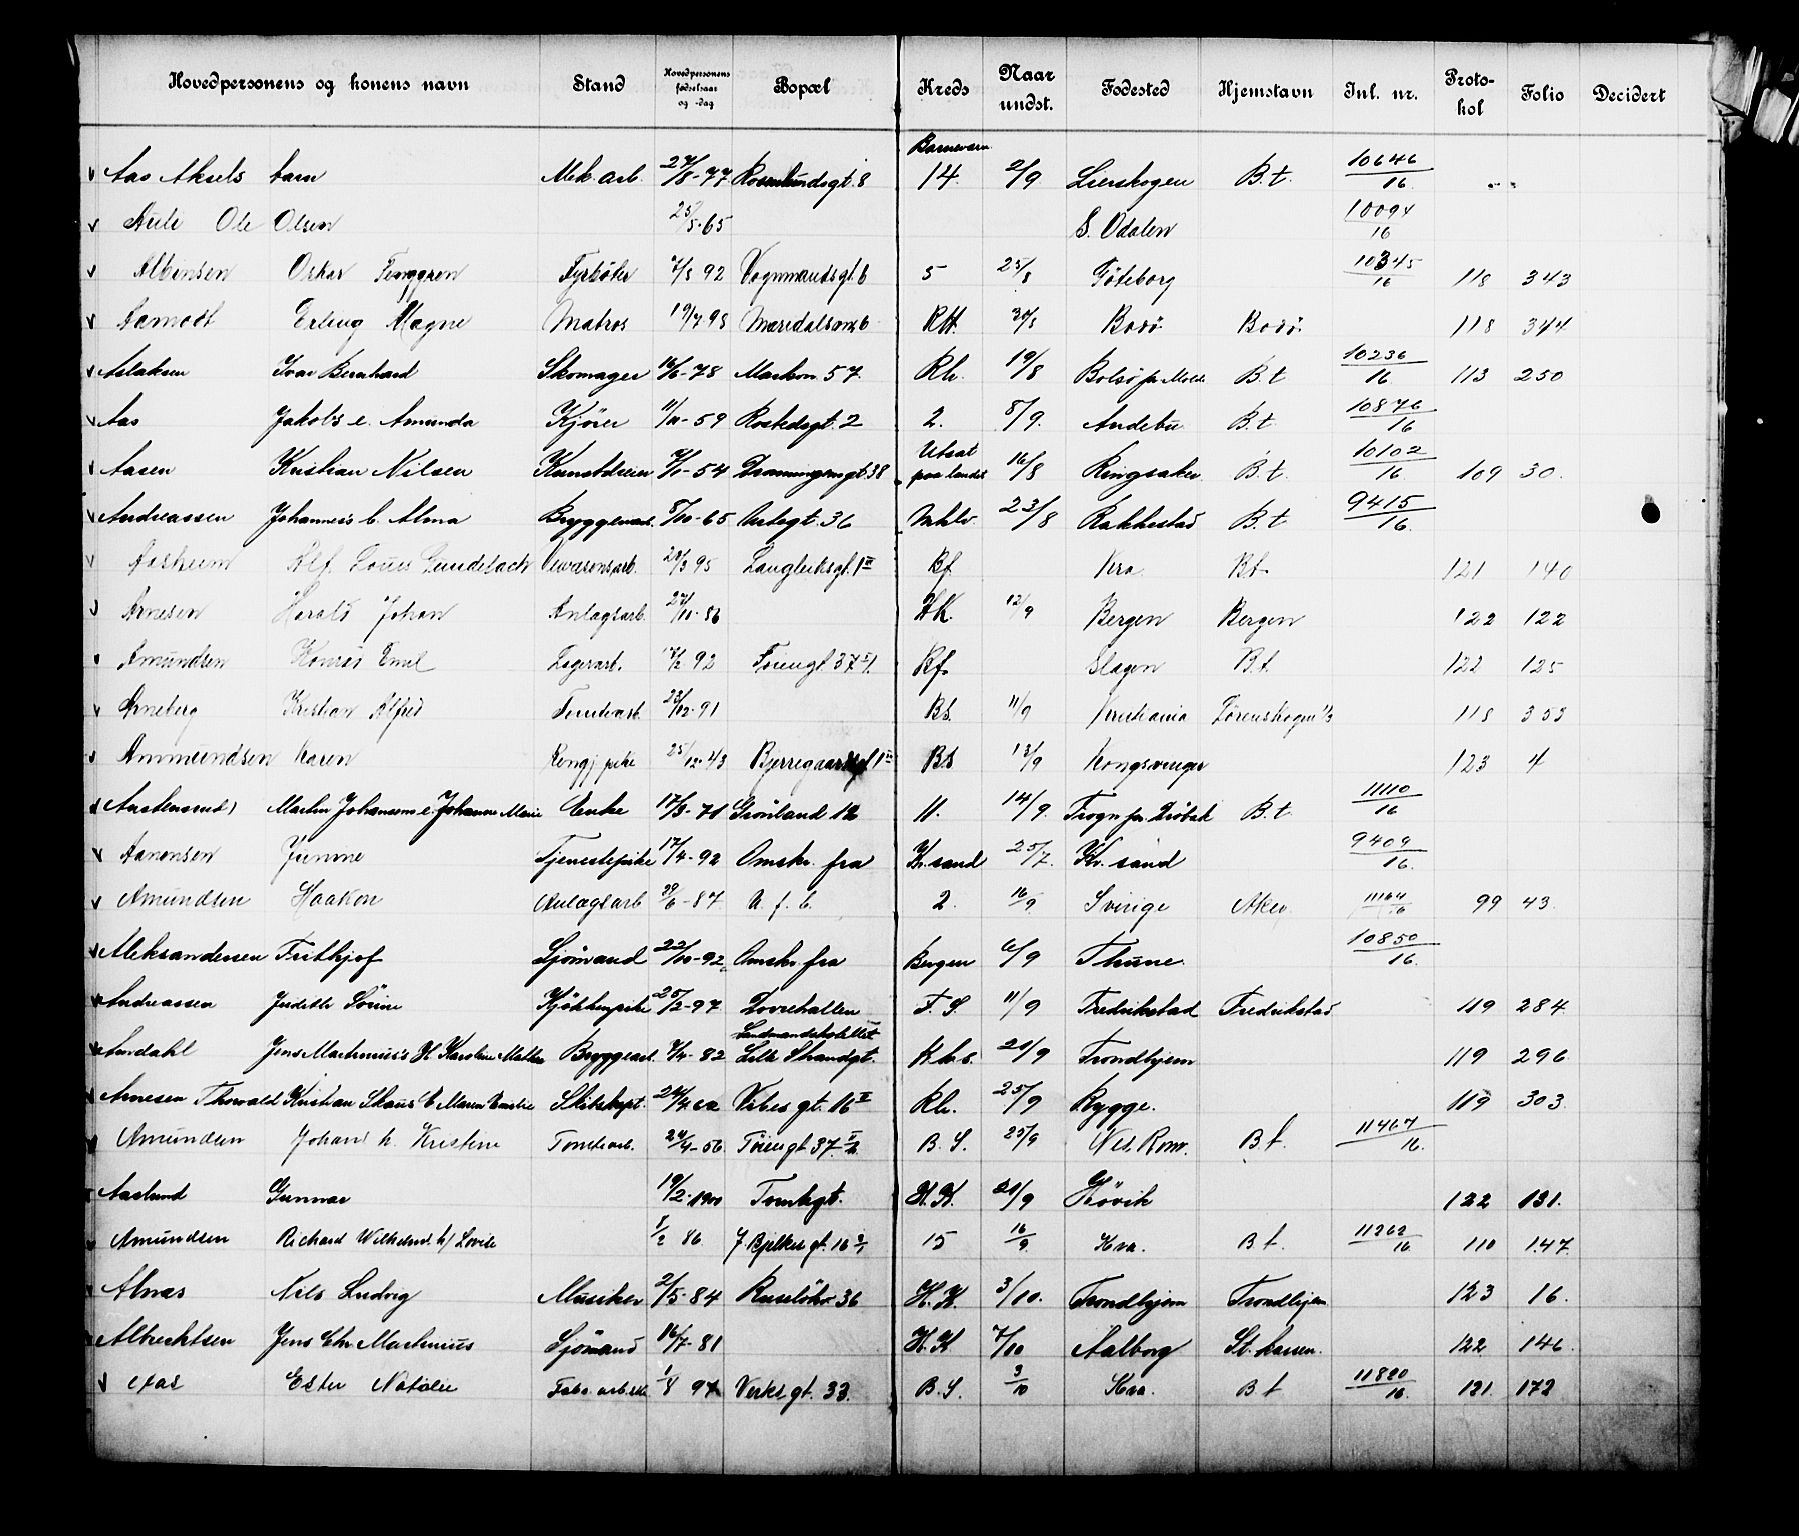 Hovedpersonens og konens navn | Stand | Hovedpersonens fødselsaar og -dag | Bopæl | Kreds | Naar undst. | Fødested | Hjemstavn | Inl. nr. | Protokol | Folio | Decidert
Aas Aksels barn | Mek. arb. | 27/8-77 | Rosenlundsgt. 8 | Barnevern 14. | 2/9. | Lierskogen | B.t. | 10646/16.
Auli Ole Olsen | 25/5-65 | S. Odalen | 10094/16
Albinsen Oskar Tenggren | Fyrbøter | 7/8 92 | Vognmandsgt. 6 | 5 | 25/8 | Göteborg | 10345/16 | 118 | 343
Aamodt Erling Magne | Matros | 19/7 95 | Maridalsvei 6 | RH. | 30/8 | Bodö | Bodö. | 118 | 344
Aslaksen Ivar Bernhard | Skomager | 16/6-78 | Markvn. 57. | Rh. | 19/8 | Bolsö pr. Molde | B.t | 10236/16. | 113 | 250
Aas Jakobs e. Amunda | Kjörer | 11/11-59 | Rostedsgt. 2 | 2. | 8/9. | Andebu | B.t. | 10876/16
Aasen Kristian Nilsen | -54 | Dronningensgt. 38 | Utsat paa landet | 16/8 | Ringsaker | B.t | 10102/16. | 109 | 30.
Andreassen Johannes's b. Alma | Bryggearb. | 5/10-65 | Urtegt. 36 | 23/8 | Rakkestad | B.t | 9415/16.
Aasheim Alf Louis Gundelach | 95 | Langleiksgt. 1 II | Bf. | Kra. | B.t. | 121 | 140
Arnesen Harald Johan | Anlagsarb. | 27/11-86 | H.K. | 12/9 | Bergen | Bergen | 122 | 122
Amundsen Konrad Emil | Lagerarb. | 17/2 92 | Töiengt. 37 | Rf. | Slagen | B.t. | 122 | 125
Arneberg Kristian Alfred | Tomtearb. | 23/12-91 | B.S. | 11/9 | Kristiania | Lörenskogen | 118 | 353
Ammundsen Karen | Rengj. pike | 25/12-43 | B.S | 13/9 | Kongsvinger | 123 | 4
Austensrud, Martin Johansens e. Johanne Marie | Enke | 17/3-71 | Grönland 12 | 11. | 14/9. | Frogn pr. Dröbak | B.t. | 11110/16
Aanensen | Tjenestepike | 17/4-92 | Omskr. fra | Kr.sand | 25/7. | Kr. sand | 9409/16.
Amundsen Haakon | Anlagsarb | 29/6-87. | U. f. b. | 2. | 16/9. | Sverige | Aker. | 11164/16 | 99 | 43.
Aleksandersen Frithjof | Sjömand | 22/10-92. | Omskr. fra | Bergen | 6/9 | Thune. | 10850/16.
Andreassen Judith Sörine | Kjökkenpike | 25/2-97 | Dovrehallen | F.S. | 11/9 | Fredrikstad | Fredrikstad | 119 | 284
Amdahl Jens Martinius's H. Karoline Mathea | Bryggearb. | 7/4-82 | Landmandshotellet Lille Strandgt. | K.h.s. | 21/9 | Trondhjem | 119 | 296
Arnesen Thorvald Kristian Skaus E. Maren Emilie | Skibskapt. | 24/4 62 | Vibes gt. 16 II | Rh. | 25/9 | Rygge. | 119 | 303
Amundsen Johans h. Kristine | Tomtearb. | 24/4-56 | Töiengt. 37. | B.S. | 25/9 | Nes, Rom. | B.t. | 11467/16.
Aaslund Gunnar | 19/2-1900 | Tomtegt. | H.K. | 21/9 | Hövik | 122 | 131.
Amundsen Richard Wilhelms h/ Lovise | 1/2 86 | J. Bjelkes gt. 16 | 15 | 16/9. | Kra. | B.t. | 11262/16 | 110 | 147.
Alnæs Nils Ludvig | Musiker | 2/5-84 | Ruselökv. 36 | H.K. | 3/10. | Trondhjem | Trondhjem | 123 | 16.
Albrechtsen Jens Chr. Martinius | Sjömand | 16/7-81 | H.K | 7/10 | Aalborg | St. kassen. | 122 | 146.
Aas Ester Natalie | Fabr. arb.ske | 1/8 97 | Verksgt. 33. | B.S. | 3/10 | Kra. | B.t | 11820/16. | 121. | 172